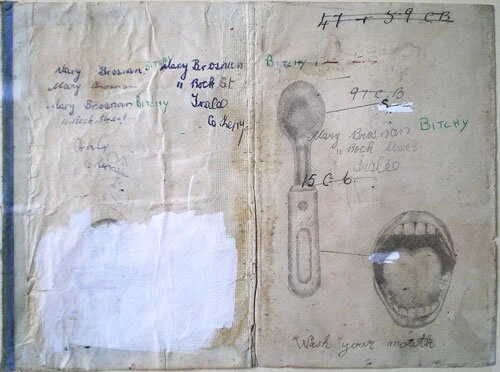 Mary Brosnan BITCHY
Mary Brosnan
Mary Brosnan BITCHY
" Rock Street
Tralee
Mary Brosnan
" Rock St.
Tralee
Co Kerry
47 + 59 CB
BITCHY
97 C.B
S
Mary Brosnan BITCHY
" Rock Street
Tralee
15 C. b.
Wash your mouth